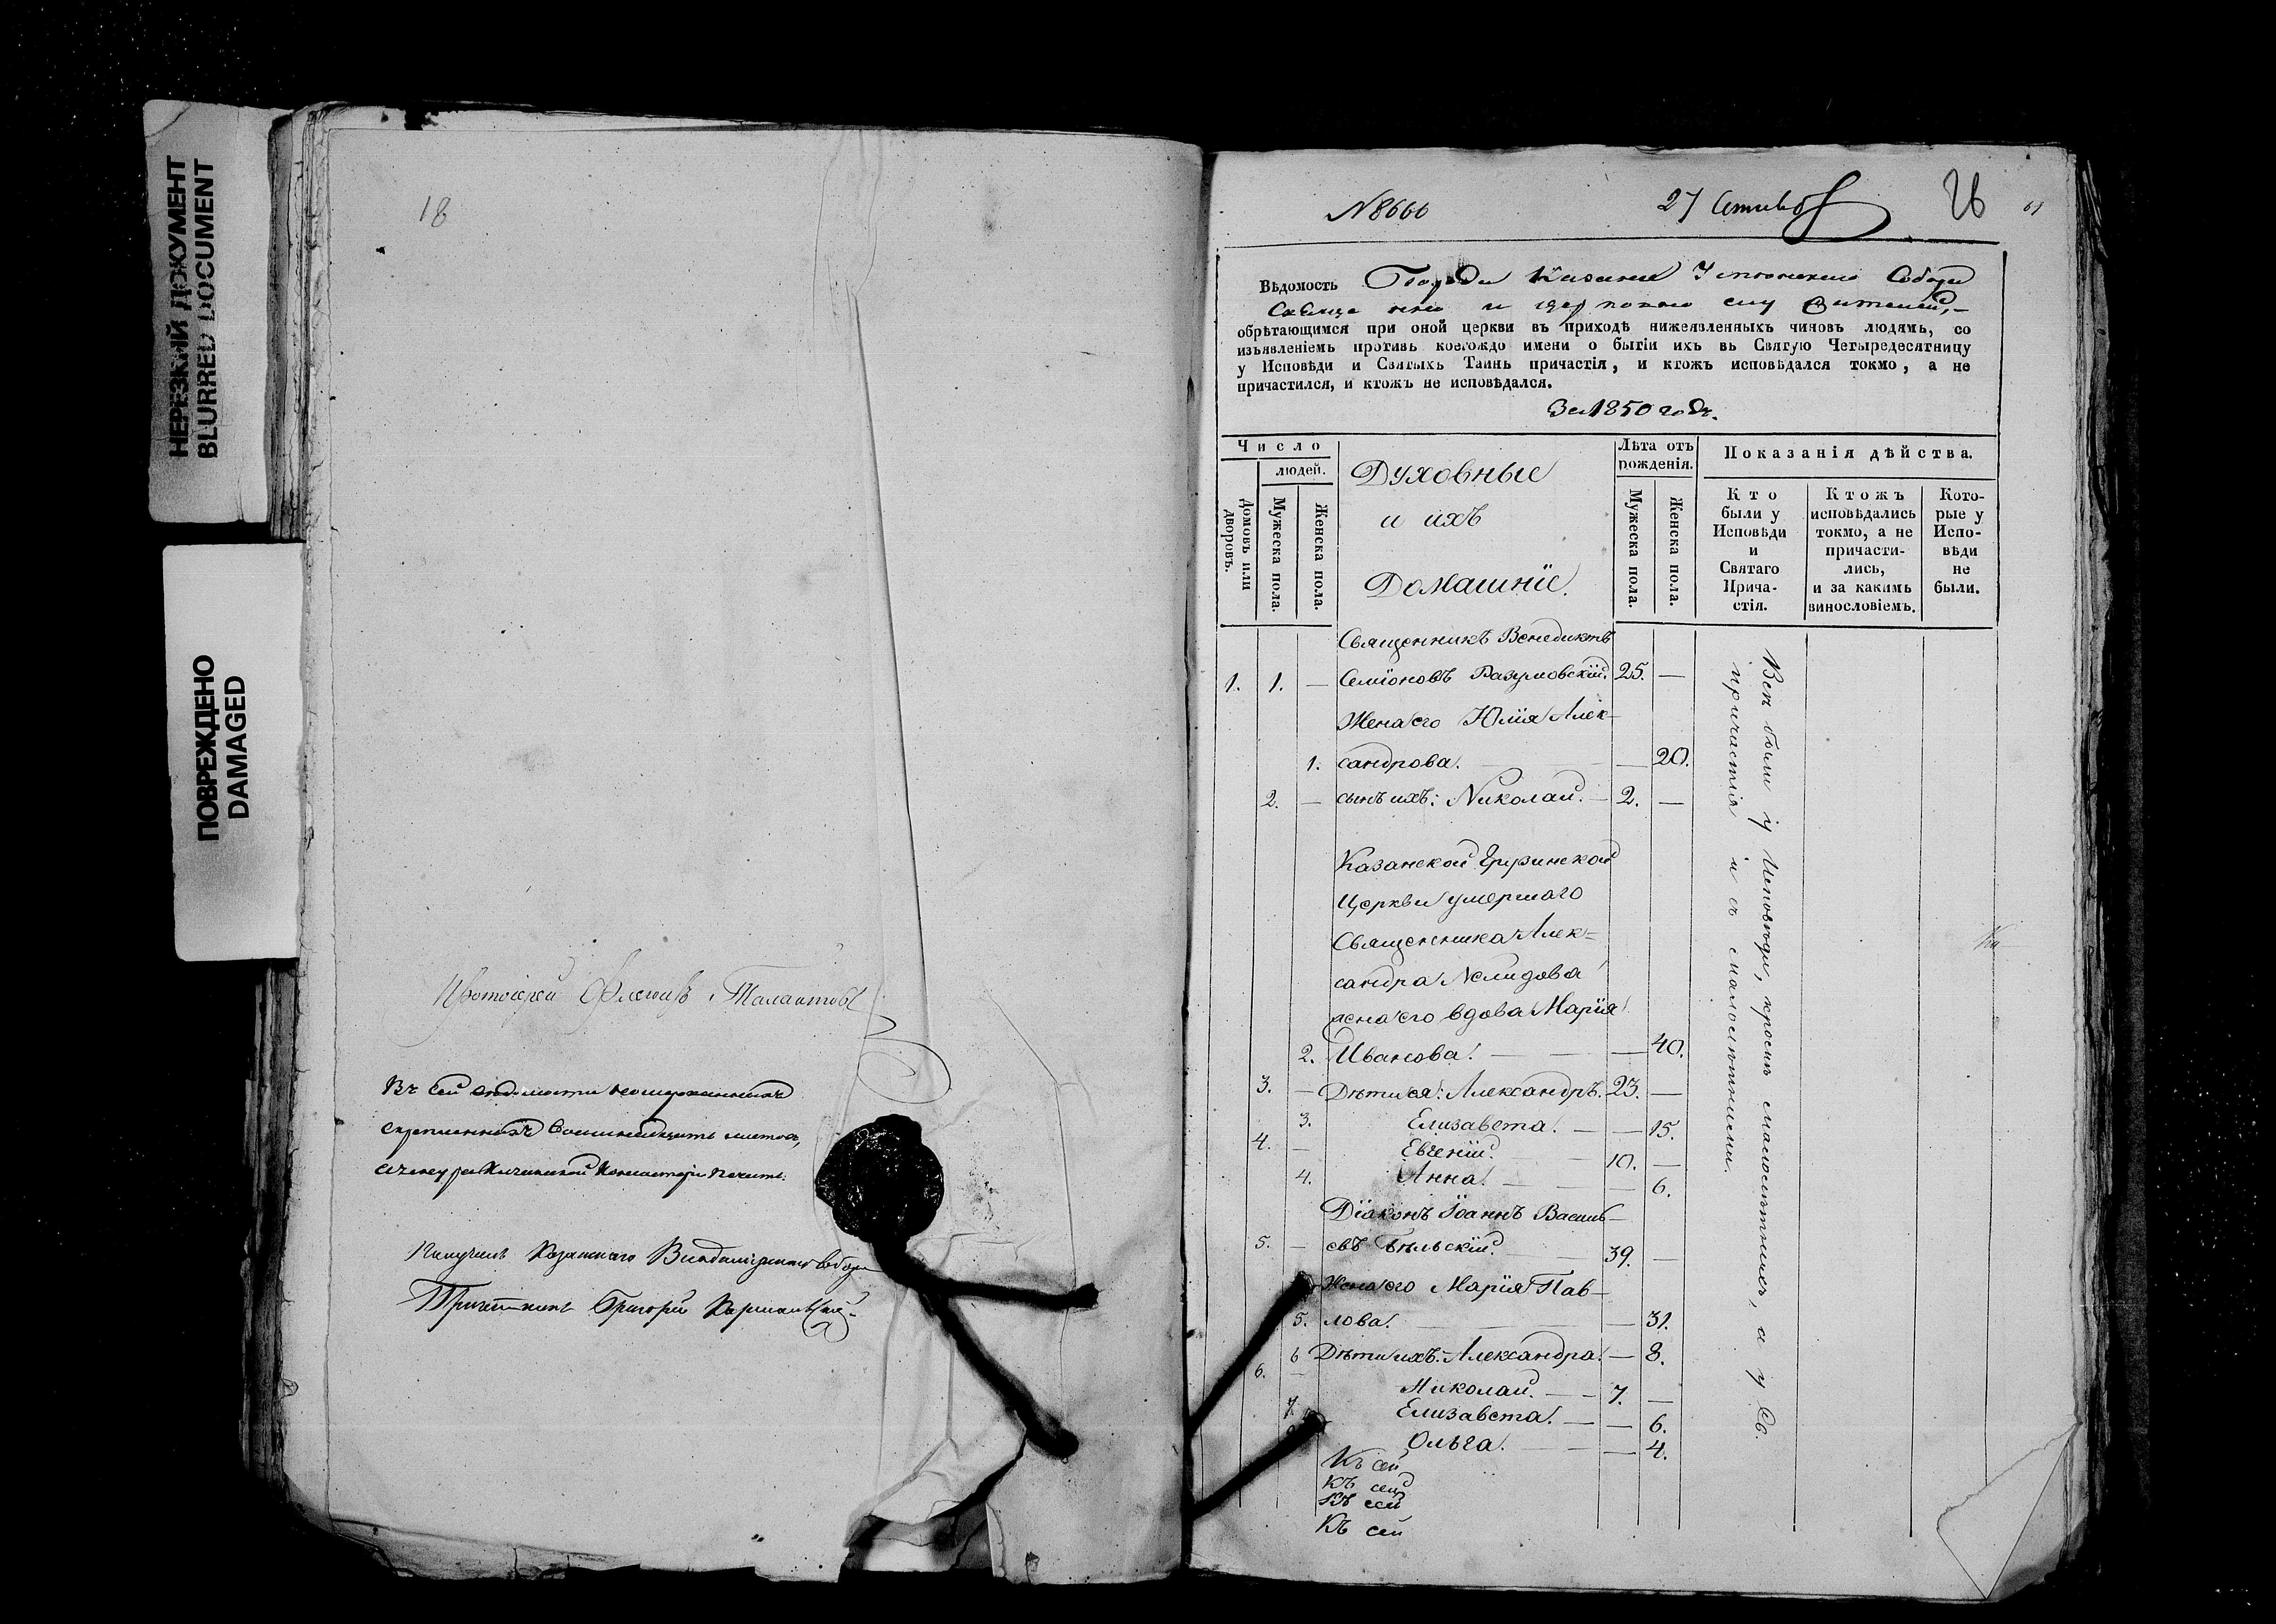 НЕРЕЗКИЙ ДОКУМЕНТ
BLURRED DOCUMENT
ПОВРЕЖДЕНО
DAMAGED
18
Протоіерей Талантовъ
Въ сей вѣдомости
скрепленныхъ восимнадцать листовъ,
Консисторіи печать.
Получилъ Казанскаго собора
Григорій
№8666
27
26
Вѣдомость Города Казани собора
обрѣтающимся при оной церкви въ приходѣ нижеявленныхъ чиновъ людямъ, со
изъявленіемъ противъ коегождо имени о бытіи ихъ въ Святую Четыредесятницу
у Исповѣди и Святыхъ Таинъ причастія, и ктожъ исповѣдался токмо, а не
причастился, и ктожъ не исповѣдался.
За 1850 годъ.
Число
людей.
Домовъ или дворовъ.
Мужеска пола.
Женска пола.
Духовные
и ихъ
Домашніе.
Лѣта отъ
рожденія.
Мужеска пола.
Женска пола.
Показанія дѣйства.
Кто
были у
Исповѣди
и
Святаго
Прича-
стія.
Ктожъ
исповѣдались
токмо, а не
причасти-
лись,
и за какимъ
винословіемъ.
Кото-
рые у
Испо-
вѣди
не
были.
Священникъ Венедиктъ
1. 1. — Семіоновъ Разумовскій. 25. —
Жена его Юлія Алек-
1. сандрова. — 20.
2. — сынъ ихъ: Николай. — 2. —
Казанской Грузинской
Церкви умершаго
Священника Алек=
сандра Нелидова
жена его вдова Марія
2. Иванова. — 40.
3. — Дѣти ея: Александръ. 23. —
3. Елизавета. — 15.
4. — Евгеній. 10. —
4. Анна. — 6.
Діаконъ Іоаннъ Василь-
5. — евъ Бѣльскій. 39. —
Жена его Марія Пав-
5. лова. — 31.
6 Дѣти ихъ: Александра. — 8.
6. — Николай. — 7. —
7. Елизавета. — 6.
Ольга. — 4.
Къ сей
Къ сей
Къ сей
Къ сей
Всѣ были у Исповѣди, кромѣ малолѣтнихъ, а у Св.
причастія и съ малолѣтними.